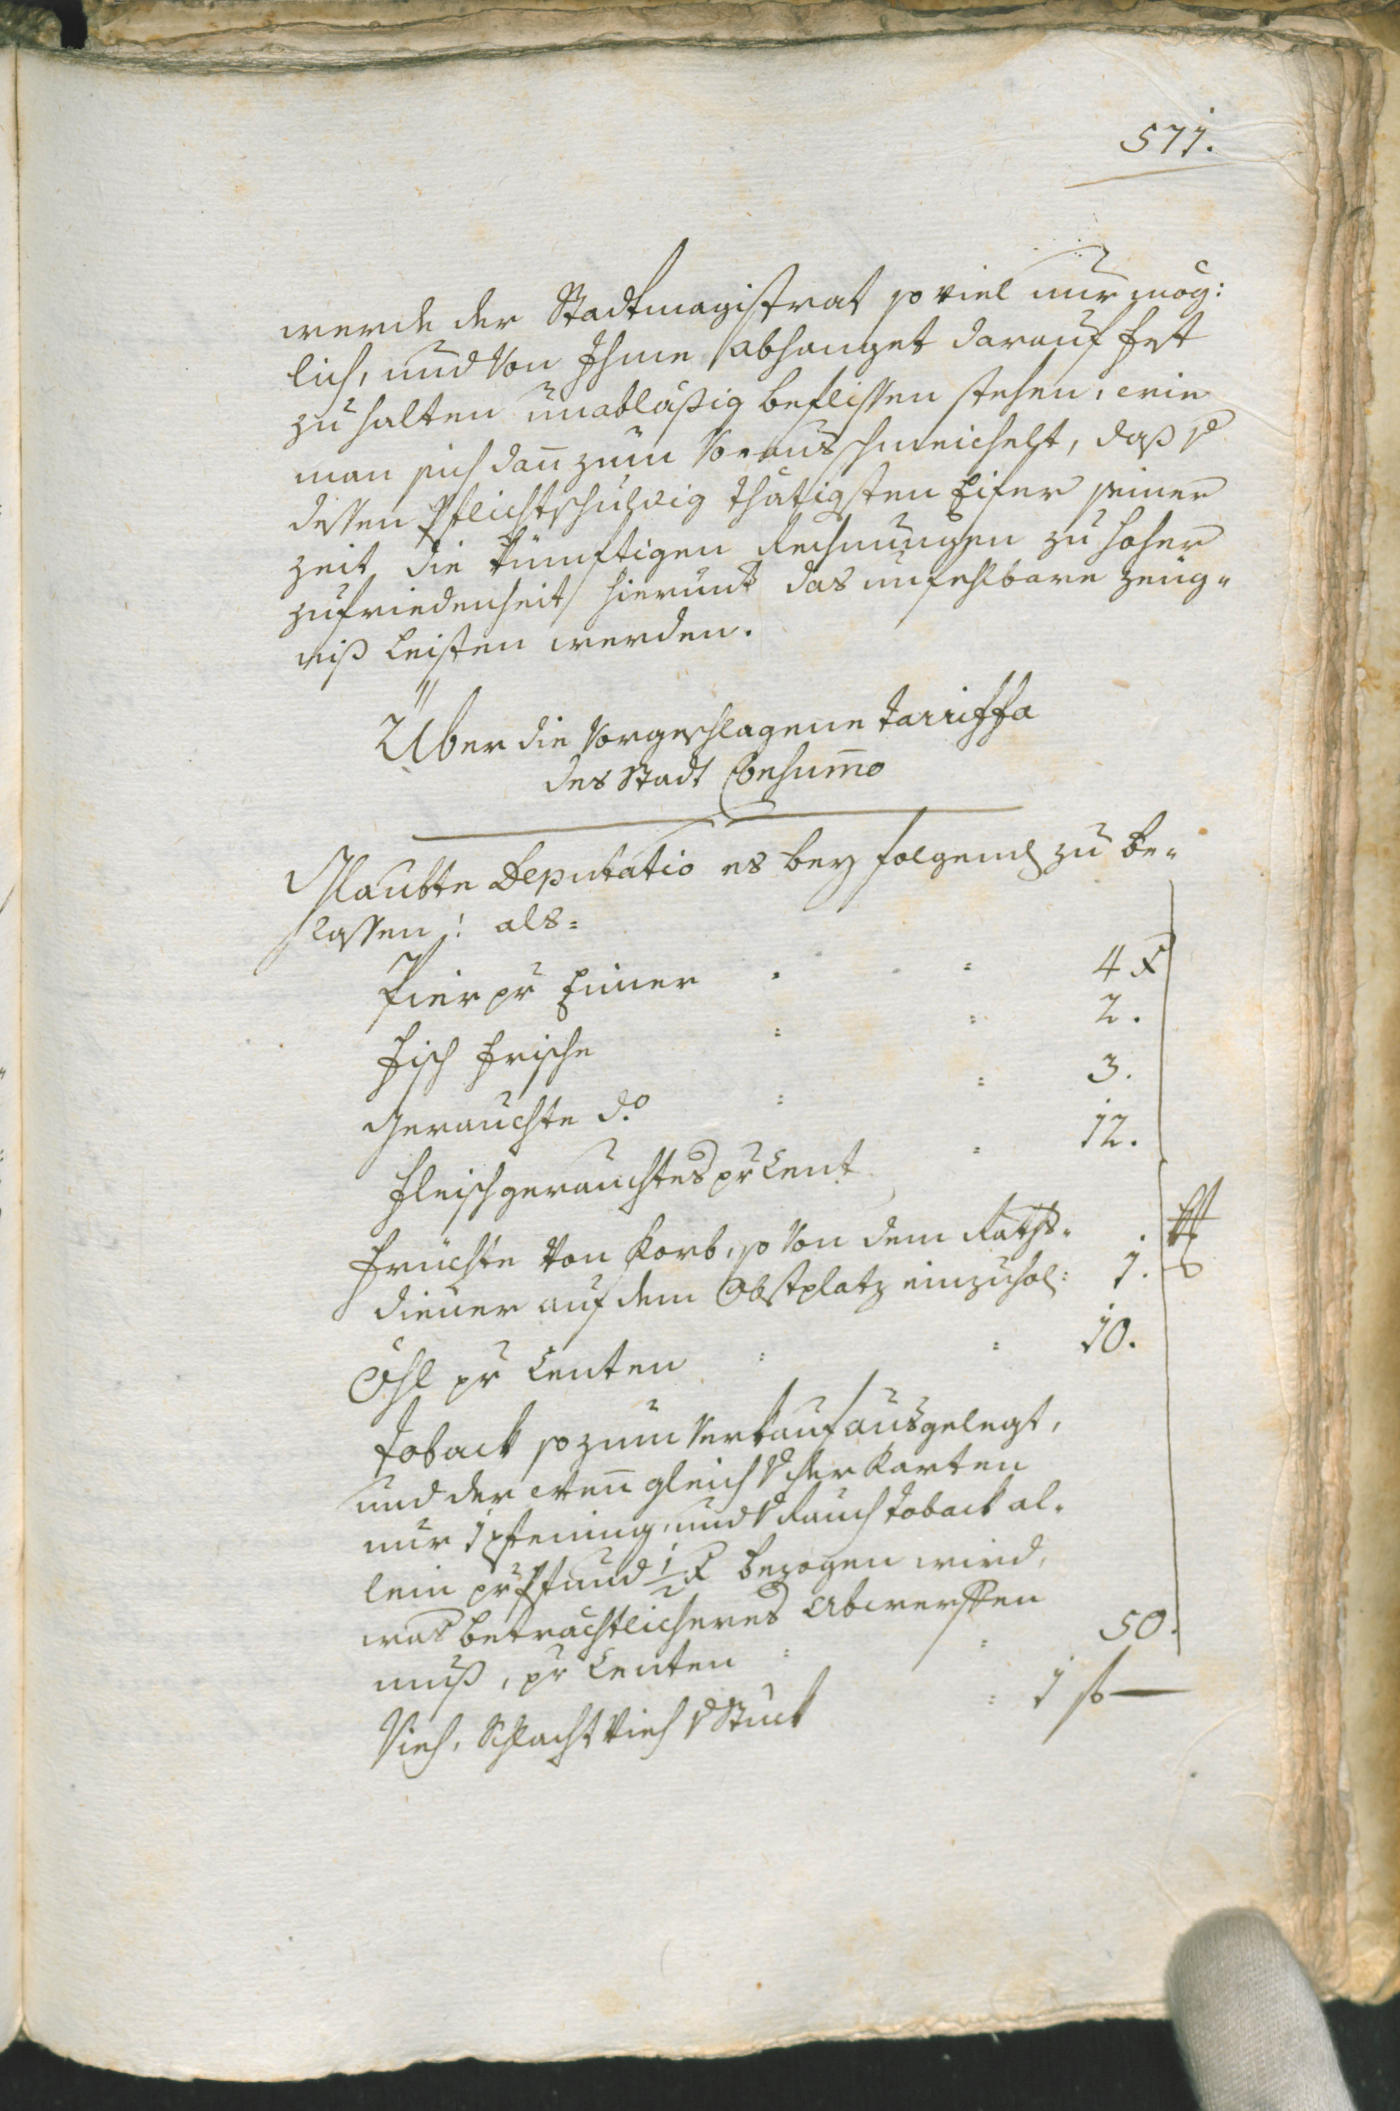 571.
werde der Stadtmagistrat so viel nur mög:
lich, und von Ihme abhanget darauf fest
zu halten unabläßig beflissen stehen, wie
man sich dañ zum Voraus schmeichelt, daß
dessen Pflichtschuldig thätigsten Eifer seiner
zeit die künftigen Rechnungen zu hoher
zufriedenheit hierunt das unfehlbare zeug„
niß leisten werden.
Über die Vorgeschlagene Tariffa
des Stadt Consum̃o
Glaubte Deputatio es bey folgend zu be„
lassen: als:
Bier pr Eimer 4 x
Fisch frische 2.
Gerauchte do 3.
Fleisch gerauchtes pr Cent 12.
Früchte von Korb, so von dem Raths„
diener auf dem Obstplatz einzuhol: 1.
Öhl pr Centen 10.
Toback so zum Verkauf ausgelegt,
und der weñ gleich der Karten
nur 1 pfening, und Rauch toback al„
lein pr Pfund 1/2 x bezogen wird,
was beträchtlicheres Abwerffen
muß, pr Centen 50.
Vieh, Schlacht Vieh Stuck 1 f —